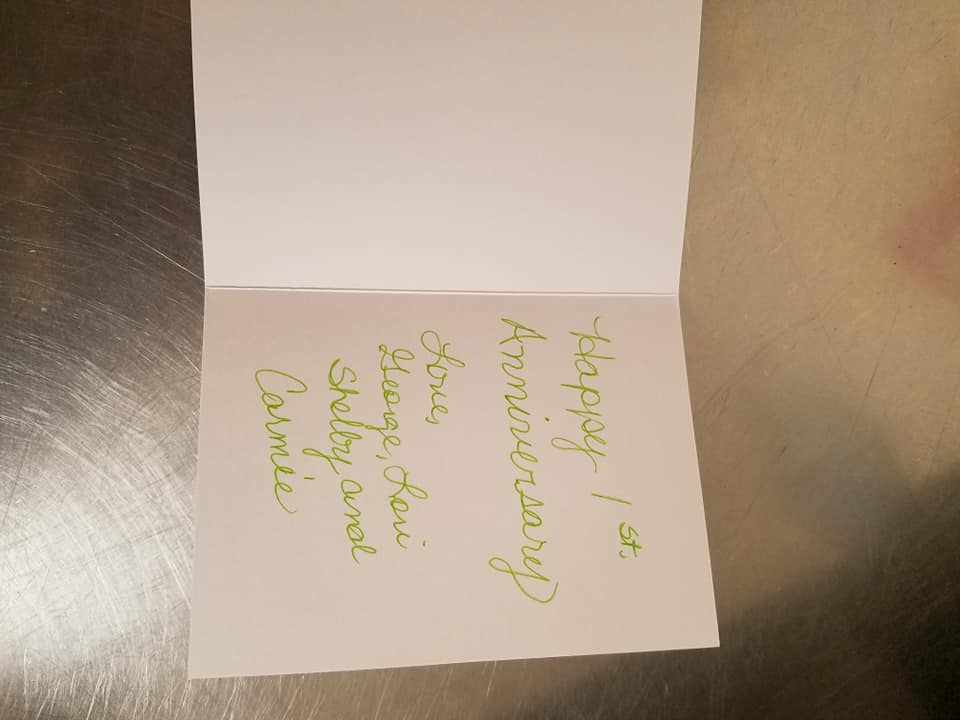 Happy 1st.
Anniversary
Love,
George, Lori
Shelby and
Carmée